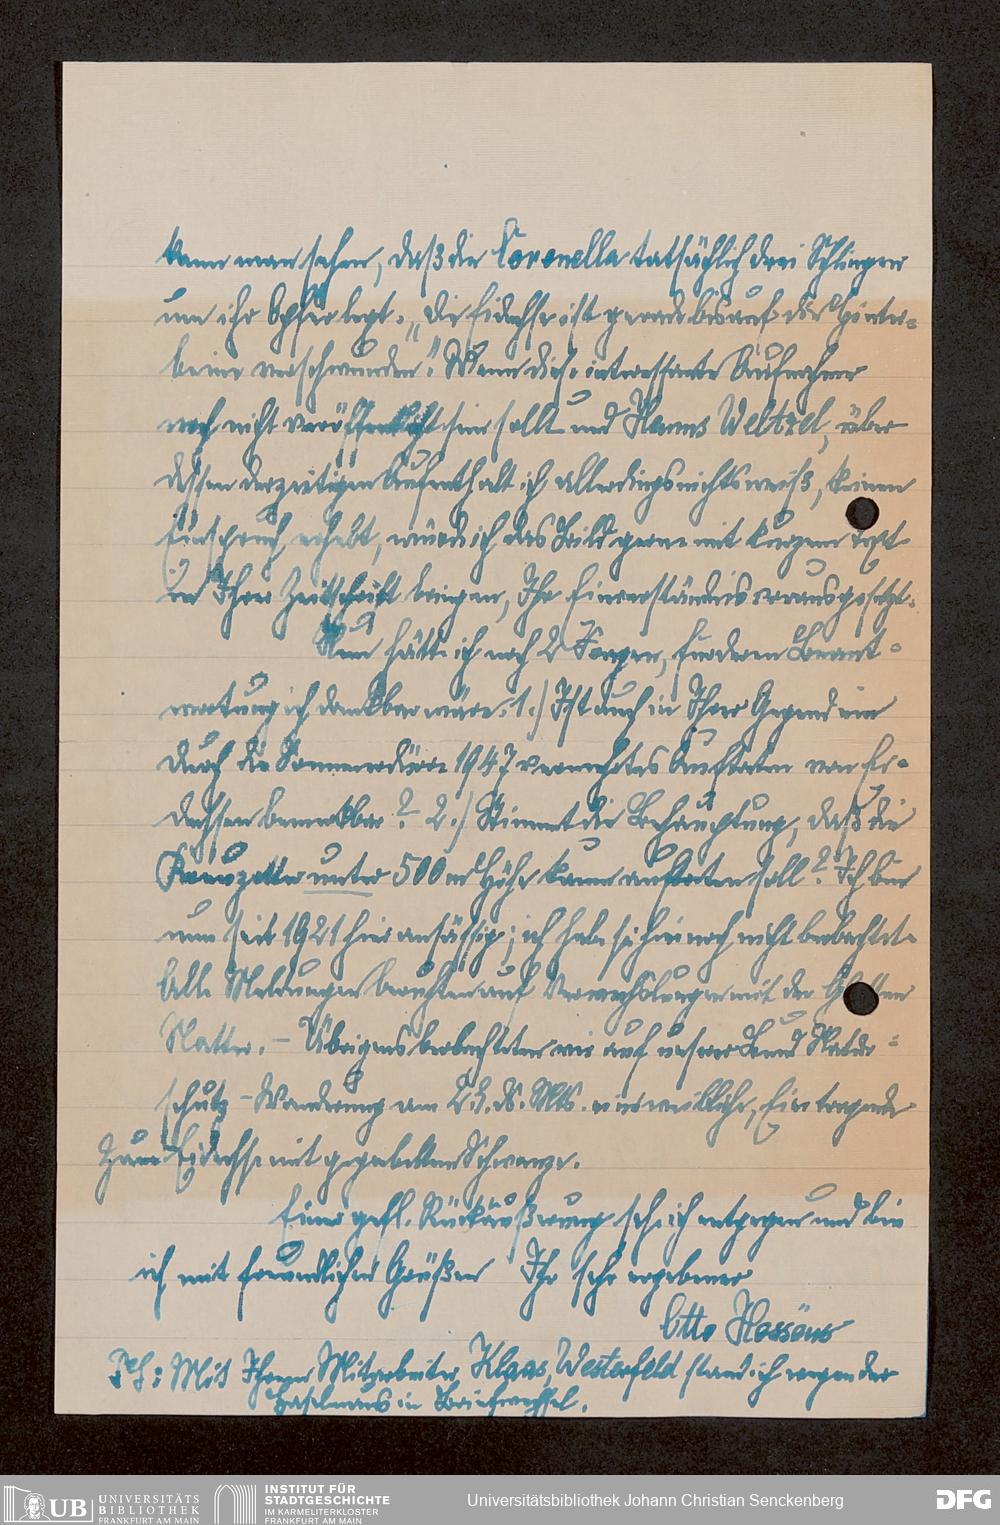 kann man sehen, daß die Coronella tatsächlich drei Schlingen
um ihr Opfer legt. „Die Eidechse ist gerade bis auf die Hinter=
beine verschwunden." Wenn diese interessante Aufnahme
noch nicht veröffentlicht sein sollte und Hanns Weltzel, über
dessen derzeitigen Aufenthalt ich allerdings nichts weiß, keinen
Einspruch erhebt, würde ich das Bild gerne mit kurzem Text
in Ihrer Zeitschrift bringen, Ihr Einverständnis vorausgesetzt.
Nun hätte ich noch 2 Fragen, für deren Beant=
wortung ich dankbar wäre: 1.) Ist auch in Ihrer Gegend ein
durch die Sommerdürre 1947 vermehrtes Auftreten von Ei=
dechsen bemerkbar? 2.) Stimmt die Behauptung, daß die
Kreuzotter unter 500 m Höhe kaum auftreten soll? Ich bin
nun seit 1921 hier ansässig; ich habe sie hier noch nicht beobachtet.
Alle Meldungen beruhten auf Verwechslungen mit der Glatten
Natter. – Übrigens beobachteten wir auf unserer Bund Natur=
schutz – Wanderung am 23. ds. Mts. eine weibliche, Eier tragende
Zauneidechse mit gegabeltem Schwanze.
Einer gefl. Rückäußerung sehe ich entgegen und bin
ich mit freundlichen Grüßen Ihr sehr ergebener
Otto
PS: Mit Ihrem Mitarbeiter, Klaas, Westerfeld stand ich wegen der
Haselmaus in Briefwechsel.
UB UNIVERSITÄTS
BIBLIOTHEK
FRANKFURT AM MAIN
INSTITUT FÜR
STADTGESCHICHTE
IM KARMELITERKLOSTER
FRANKFURT AM MAIN
Universitätsbibliothek Johann Christian Senckenberg
DFG